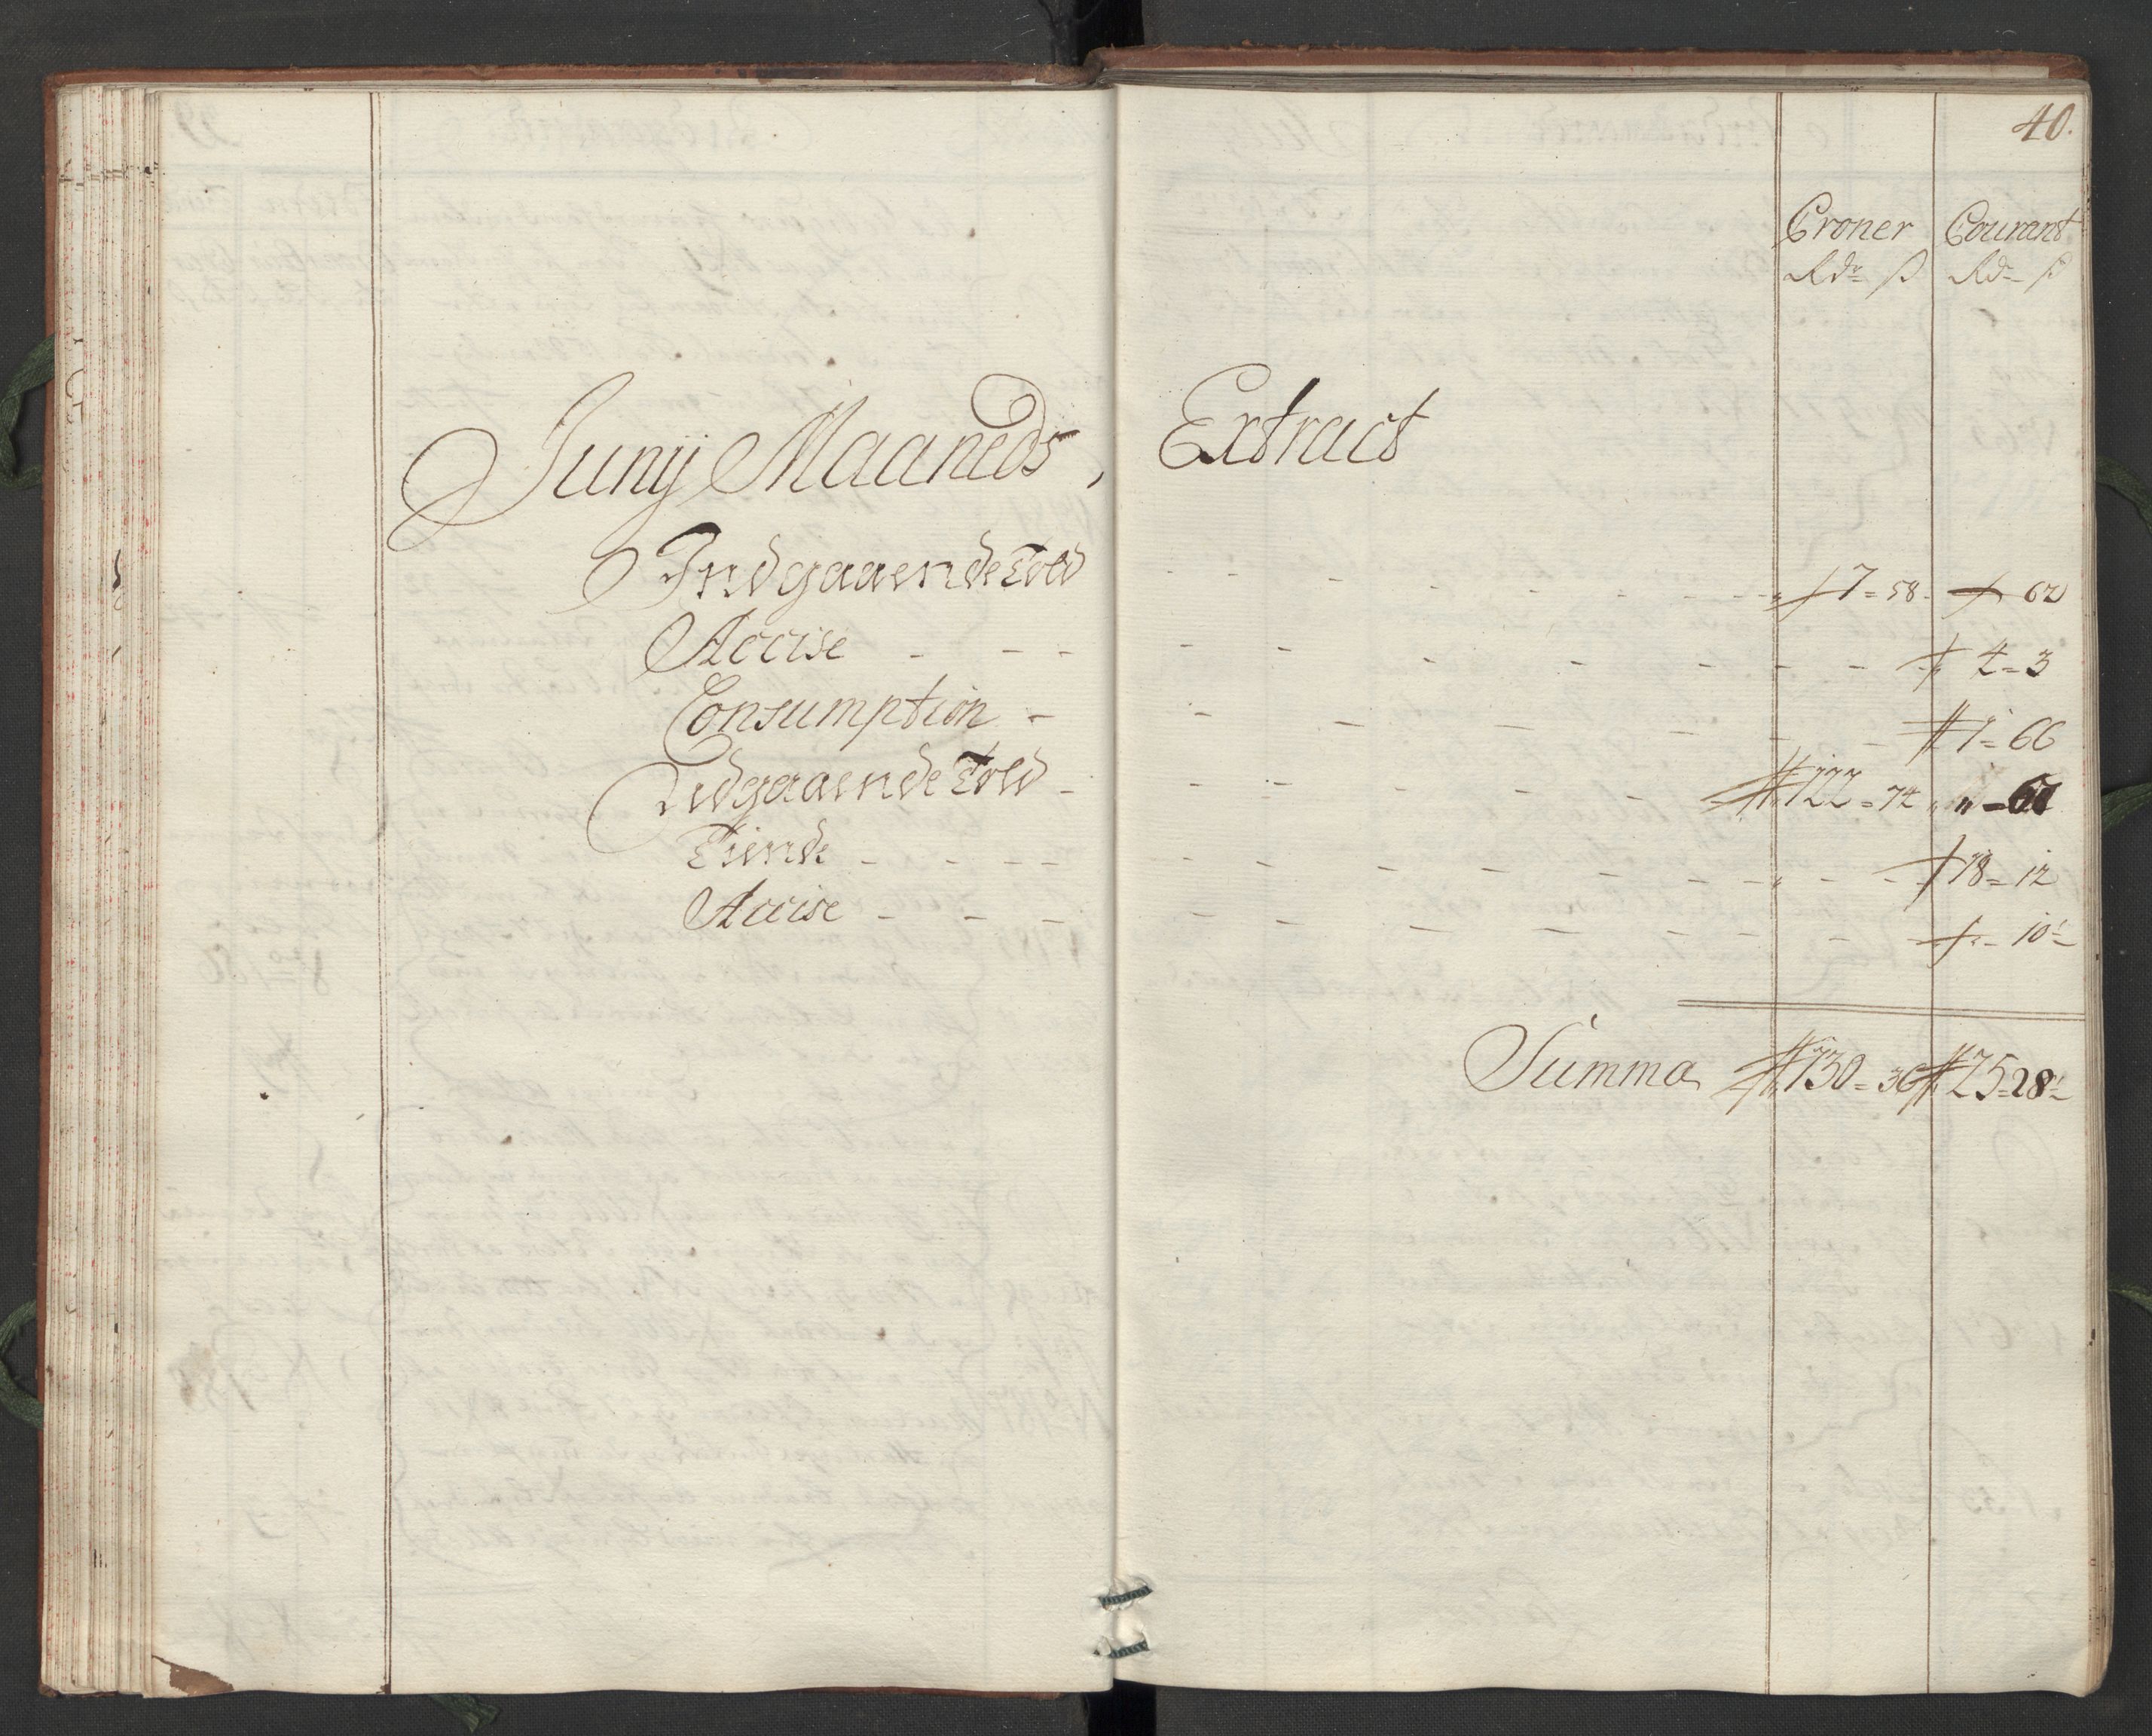 40.
Croner Courant
Rdr ß Rdr ß
Junij Maaneds, Extract
Indgaaende Told - - - 7 = 58 - 62
Accise - - - 4 = 3
Consumption - - - 1 = 66
Udgaaende Told - - - 122 = 74 " -
Tiende - - - 18 = 12
Accise - - - 10½
Summa 130 = 36 25 = 28½